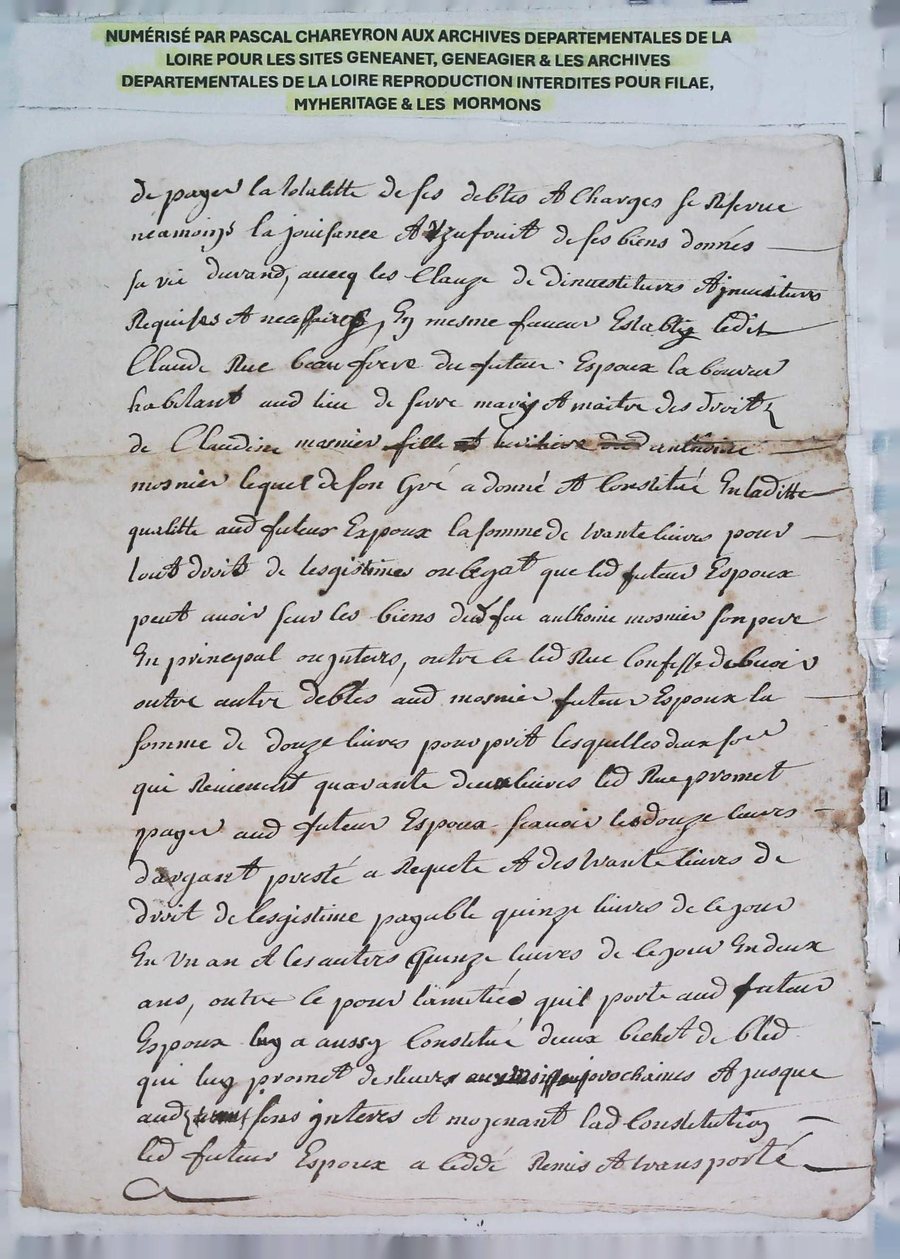 NUMÉRISÉ PAR PASCAL CHAREYRON AUX ARCHIVES DEPARTEMENTALES DE LA
LOIRE POUR LES SITES GENEANET, GENEAGIER & LES ARCHIVES
DEPARTEMENTALES DE LA LOIRE REPRODUCTION INTERDITES POUR FILAE,
MYHERITAGE & LES MORMONS
de payer la totalitte de ses debtes et Charges se Reserve
néamoings la jouisance et Uzufruit de ses biens donnés
sa vie durand, avecq les Clauze de dinvestitures et jnvestitures
Requises et necessaires, En mesme faveur Establÿ ledit
Claude Rue beau frere du futeur Espoux la boureur
habitant aud lieu de serre marÿ et maitre des droits
de Claudine mosnier fille et heritiere dud anthoine
mosnier lequel de son Gré a donné et Constitué En laditte
qualitte aud futeur Expoux la somme de trante livres pour
tout droit de lesgistimes ou legat que led futeur Espoux
peut avoir sur les biens dud feu anthoine mosnier son pere
En principal ou jnters, outre ce led Rue Confesse debvoir
outre autre debtes aud mosnier futeur Espoux la
somme de douze livres pour prit lesquelles deux som
qui Reviennent quarante deux livres led Rue promet
payer aud futeur Espoux scavoir les douze livres
dargant presté a Requete et des trante livres de
droit de lesgistime payable quinze livres de ce jour
En Un an et les autres quinze livres de ce jour En deux
ans, outre ce pour lamitié quil porte aud futeur
Espoux luy a aussy Constitué deux bichet de bled
qui luy promet deslivrer aux moissons prochaines et jusque
aud sans jnteres et moyenant lad Constitution
led futeur Espoux a ceddé Remis et transporté